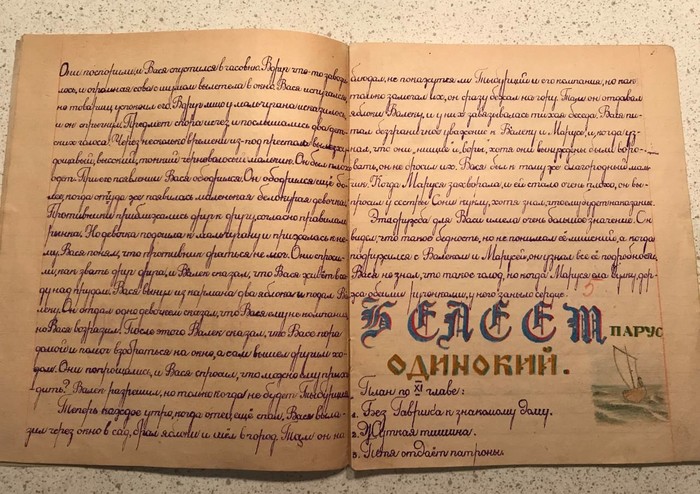 Они поспорили, и Вася спустился в часовню. Вдруг что-то завози-
лось, и огромная сова с шумом вылетела в окно. Вася испугался,
но товарищ успокоил его. Вдруг лицо у мальчугана исказилось,
и он спрятался. Предмет скоро исчез и послышались два дет-
ских голоса. Через несколько времени из-под престола вышел
высокий, тонкий черноволосый мальчик. Он был плохо
одет. При его появлении Вася ободрился. Он ободрился ещё бо-
лее, когда оттуда же появилась маленькая белокурая девочка.
Противники приблизились друг к другу, согласно правилам
рынка. Но девочка подошла к мальчугану и прижалась к не-
му. Вася понял, что противник драться не мог. Они спроси-
ли, как звать друг друга, и Валек сказал, что Вася живёт в са-
ду над прудом. Вася вынул из кармана два яблока и подал Ва-
леку. Он отдал одно девочке и сказал, что Вася ему не компания,
но Вася возразил. После этого Валек сказал, что Васе пора
домой и помог взобраться на окно, а сам вышел другим хо-
дом. Они попрощались, и Вася спросил, что можно ему прихо-
дить? Валек разрешил, но только когда не будет Тыбурция.
Теперь каждое утро, когда отец ещё спал, Вася выле-
зал через окно в сад, брал яблоки и шёл в город. Там он на-
блюдал, не покажутся ли Тыбурций и его компания, но как
только замечал их, он сразу бежал на гору. Там он отдавал
яблоки Валеку, и у них завязывалась тихая беседа. Вася пи-
тал безграничное уважение к Валеку и Марусе, и, когда уз-
нал, что они, нищие и воры, хотя они вынуждены были воро-
вать, он не бросил их. Вася был к тому же благородный маль-
чик. Когда Маруся захворала, и ей стало очень плохо, он вы-
просил у сестры Сони куклу, хотя знал, что ему будет наказание.
Эта дружба для Васи имела очень большое значение. Он
видел, что такое бедность, но не понимал её лишений, а когда
подружился с Валеком и Марусей, он узнал все её подробности.
Вася не знал, что такое голод, но когда Маруся ела булку, дер-
жа обеими ручонками, у него заныло сердце.
5
БЕЛЕЕТ ПАРУС
ОДИНОКИЙ.
План по XI главе:
1. Без Гаврика к знакомому дому.
2. Жуткая тишина.
3. Петя отдаёт патроны.